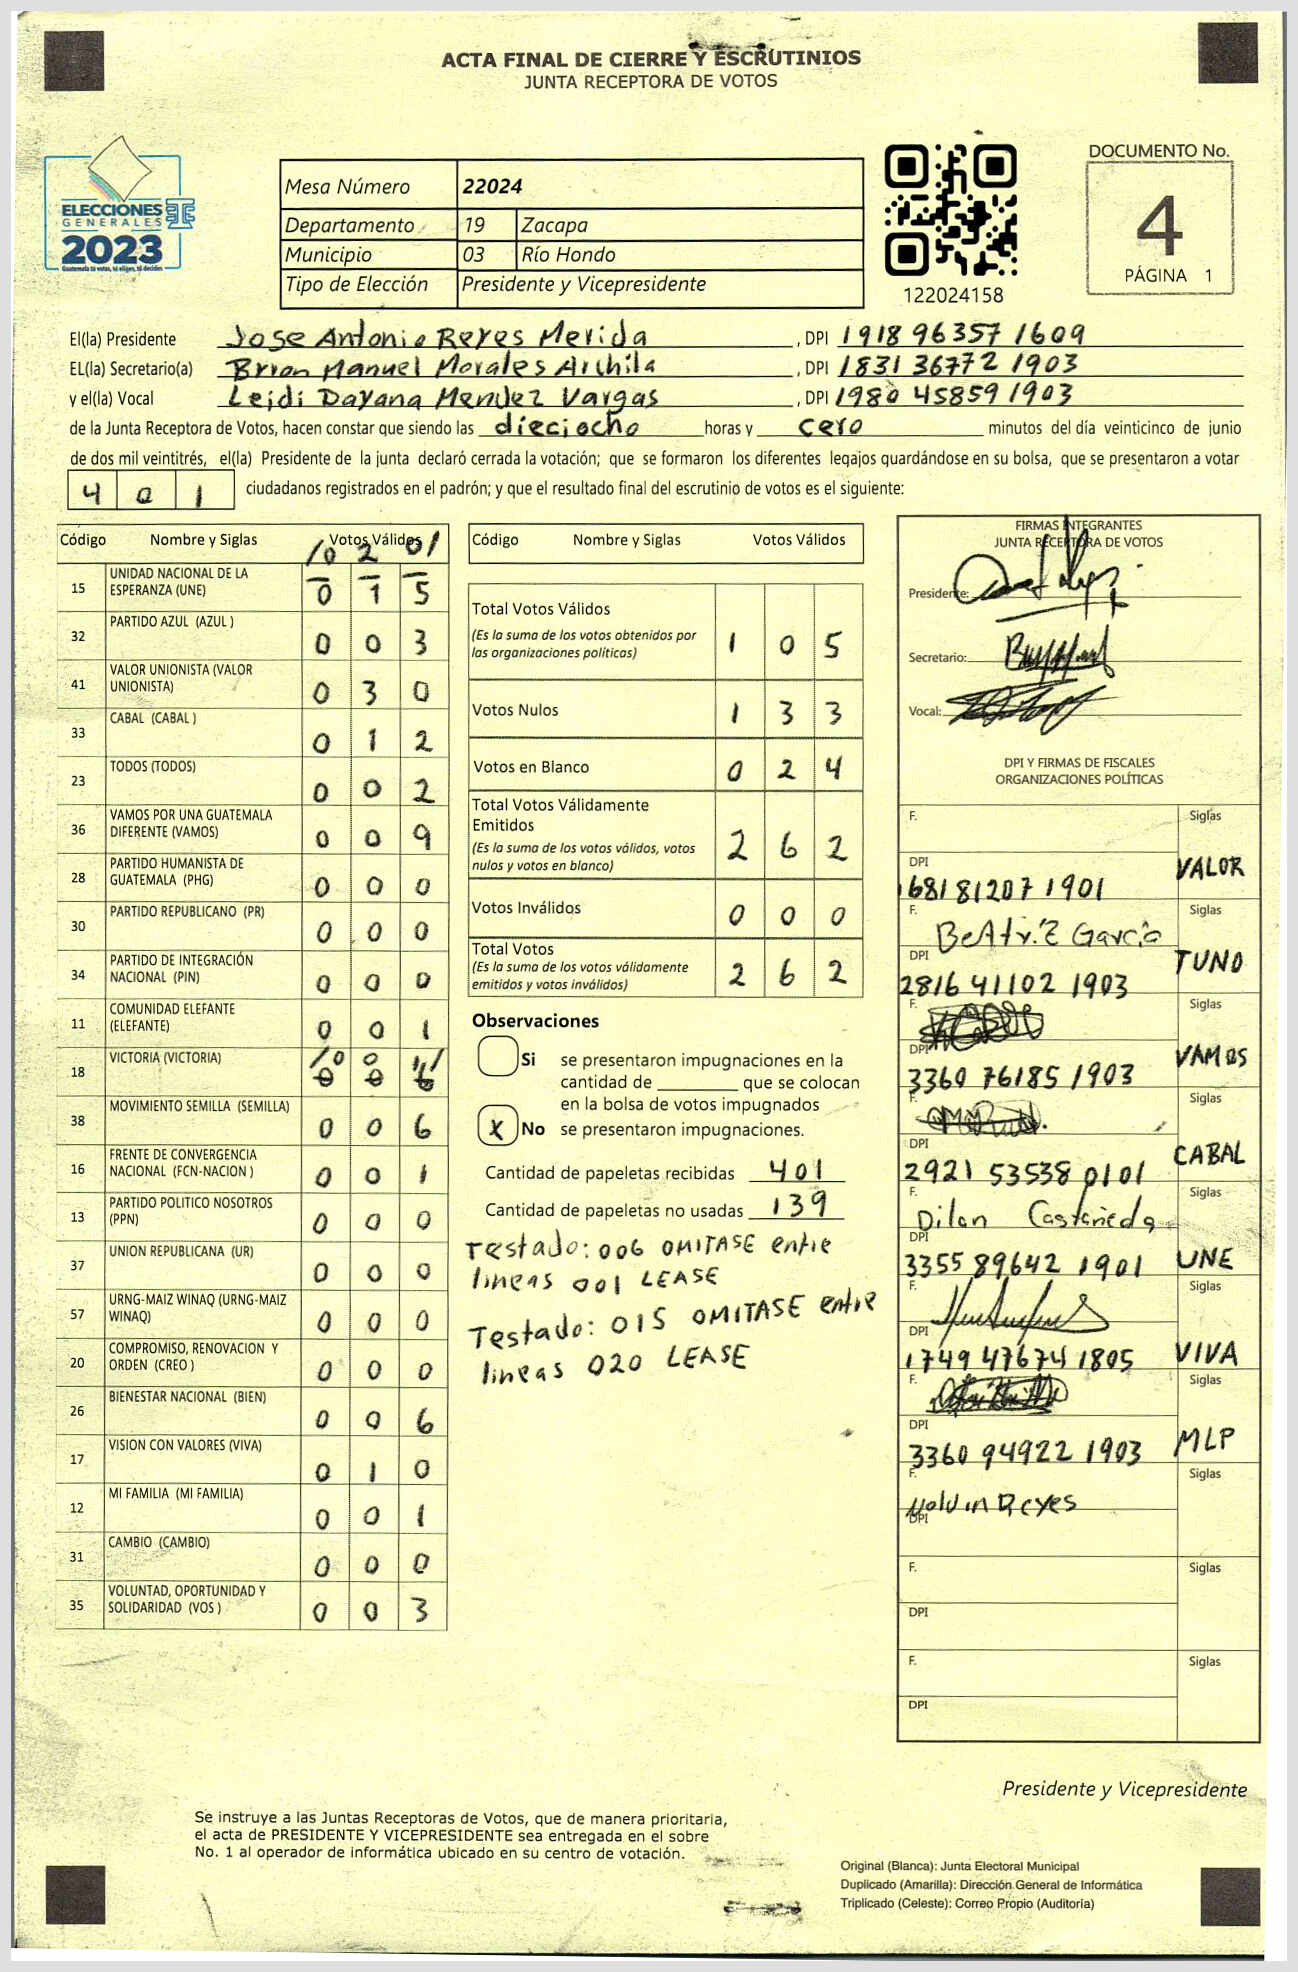 ACTA FINAL DE CIERRE Y ESCRUTINIOS
JUNTA RECEPTORA DE VOTOS
ELECCIONES
GENERALES
2023
Guatemala tú votas, tú eliges, tú decides
Mesa Número 22024
Departamento 19 Zacapa
Municipio 03 Río Hondo
Tipo de Elección Presidente y Vicepresidente
122024158
DOCUMENTO No.
4
PÁGINA 1
El(la) Presidente Jose Antonio Reyes Merida , DPI 1918 96357 1609
EL(la) Secretario(a) Brian Manuel Morales Archila , DPI 1831 36772 1903
y el(la) Vocal Leidi Dayana Mendez Vargas , DPI 1980 45859 1903
de la Junta Receptora de Votos, hacen constar que siendo las dieciocho horas y cero minutos del día veinticinco de junio
de dos mil veintitrés, el(la) Presidente de la junta declaró cerrada la votación; que se formaron los diferentes legajos guardándose en su bolsa, que se presentaron a votar
4 0 1 ciudadanos registrados en el padrón; y que el resultado final del escrutinio de votos es el siguiente:
Código Nombre y Siglas Votos Válidos
15 UNIDAD NACIONAL DE LA ESPERANZA (UNE) /0 2 0/
0 1 5
32 PARTIDO AZUL (AZUL ) 0 0 3
41 VALOR UNIONISTA (VALOR UNIONISTA) 0 3 0
33 CABAL (CABAL ) 0 1 2
23 TODOS (TODOS) 0 0 2
36 VAMOS POR UNA GUATEMALA DIFERENTE (VAMOS) 0 0 9
28 PARTIDO HUMANISTA DE GUATEMALA (PHG) 0 0 0
30 PARTIDO REPUBLICANO (PR) 0 0 0
34 PARTIDO DE INTEGRACIÓN NACIONAL (PIN) 0 0 0
11 COMUNIDAD ELEFANTE (ELEFANTE) 0 0 1
18 VICTORIA (VICTORIA) /0 0 1/
0 0 6
38 MOVIMIENTO SEMILLA (SEMILLA) 0 0 6
16 FRENTE DE CONVERGENCIA NACIONAL (FCN-NACION ) 0 0 1
13 PARTIDO POLITICO NOSOTROS (PPN) 0 0 0
37 UNION REPUBLICANA (UR) 0 0 0
57 URNG-MAIZ WINAQ (URNG-MAIZ WINAQ) 0 0 0
20 COMPROMISO, RENOVACION Y ORDEN (CREO ) 0 0 0
26 BIENESTAR NACIONAL (BIEN) 0 0 6
17 VISION CON VALORES (VIVA) 0 1 0
12 MI FAMILIA (MI FAMILIA) 0 0 1
31 CAMBIO (CAMBIO) 0 0 0
35 VOLUNTAD, OPORTUNIDAD Y SOLIDARIDAD (VOS ) 0 0 3
Código Nombre y Siglas Votos Válidos
Total Votos Válidos 1 0 5
(Es la suma de los votos obtenidos por
las organizaciones políticas)
Votos Nulos 1 3 3
Votos en Blanco 0 2 4
Total Votos Válidamente
Emitidos 2 6 2
(Es la suma de los votos válidos, votos
nulos y votos en blanco)
Votos Inválidos 0 0 0
Total Votos 2 6 2
(Es la suma de los votos válidamente
emitidos y votos inválidos)
Observaciones
Si se presentaron impugnaciones en la
cantidad de ________ que se colocan
en la bolsa de votos impugnados
X No se presentaron impugnaciones.
Cantidad de papeletas recibidas 401
Cantidad de papeletas no usadas 139
Testado: 006 OMITASE entre
lineas 001 LEASE
Testado: 015 OMITASE entre
lineas 020 LEASE
FIRMAS INTEGRANTES
JUNTA RECEPTORA DE VOTOS
Presidente:
Secretario:
Vocal:
DPI Y FIRMAS DE FISCALES
ORGANIZACIONES POLÍTICAS
F. Siglas
DPI VALOR
1681 81207 1901
F. Beatriz García Siglas
DPI TUNO
2816 41102 1903
F. Siglas
DPI VAMOS
3360 76185 1903
F. Siglas
DPI CABAL
2921 53538 0101
F. Dilan Castañeda Siglas
DPI UNE
3355 89642 1901
F. Siglas
DPI VIVA
1749 47674 1805
F. Siglas
DPI MLP
3360 94922 1903
F. Reyes Siglas
DPI
F. Siglas
DPI
F. Siglas
DPI
Presidente y Vicepresidente
Se instruye a las Juntas Receptoras de Votos, que de manera prioritaria,
el acta de PRESIDENTE Y VICEPRESIDENTE sea entregada en el sobre
No. 1 al operador de informática ubicado en su centro de votación.
Original (Blanca): Junta Electoral Municipal
Duplicado (Amarilla): Dirección General de Informática
Triplicado (Celeste): Correo Propio (Auditoría)